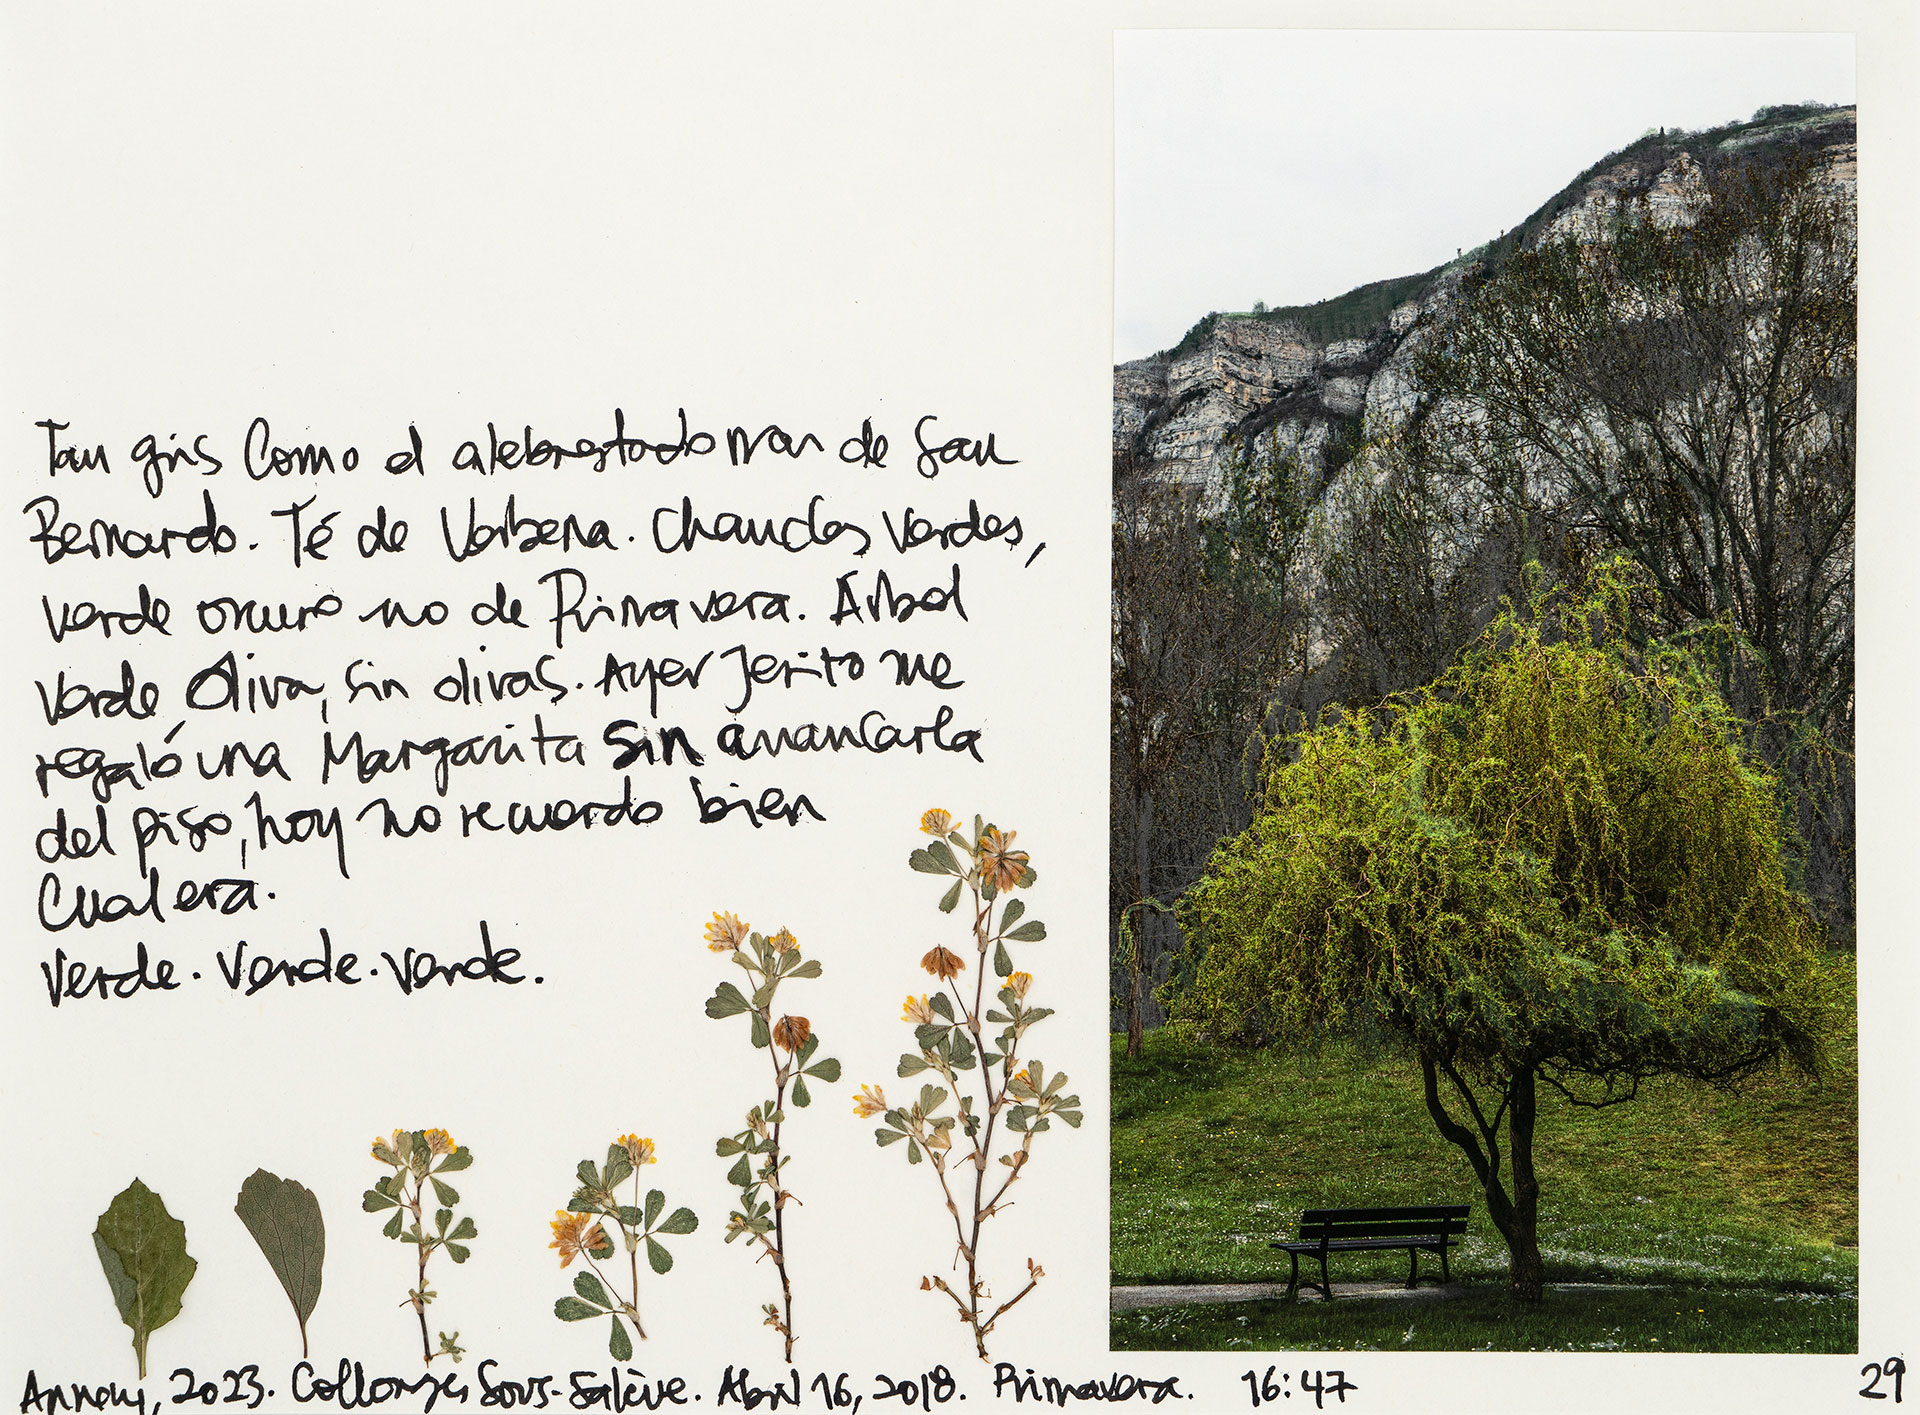 Tan gris como el alebrestado mar de San
Bernardo. Té de Verbena. Chanclas verdes,
verde oscuro no de Primavera. Arbol
verde Oliva, sin olivas. Ayer Jerito me
regaló una Margarita sin arrancarla
del piso, hoy no recuerdo bien
Cual era.
Verde. Verde. Verde.
Annecy, 2023. Collonges Sous-Salève. Abril 16, 2018. Primavera. 16:47
29